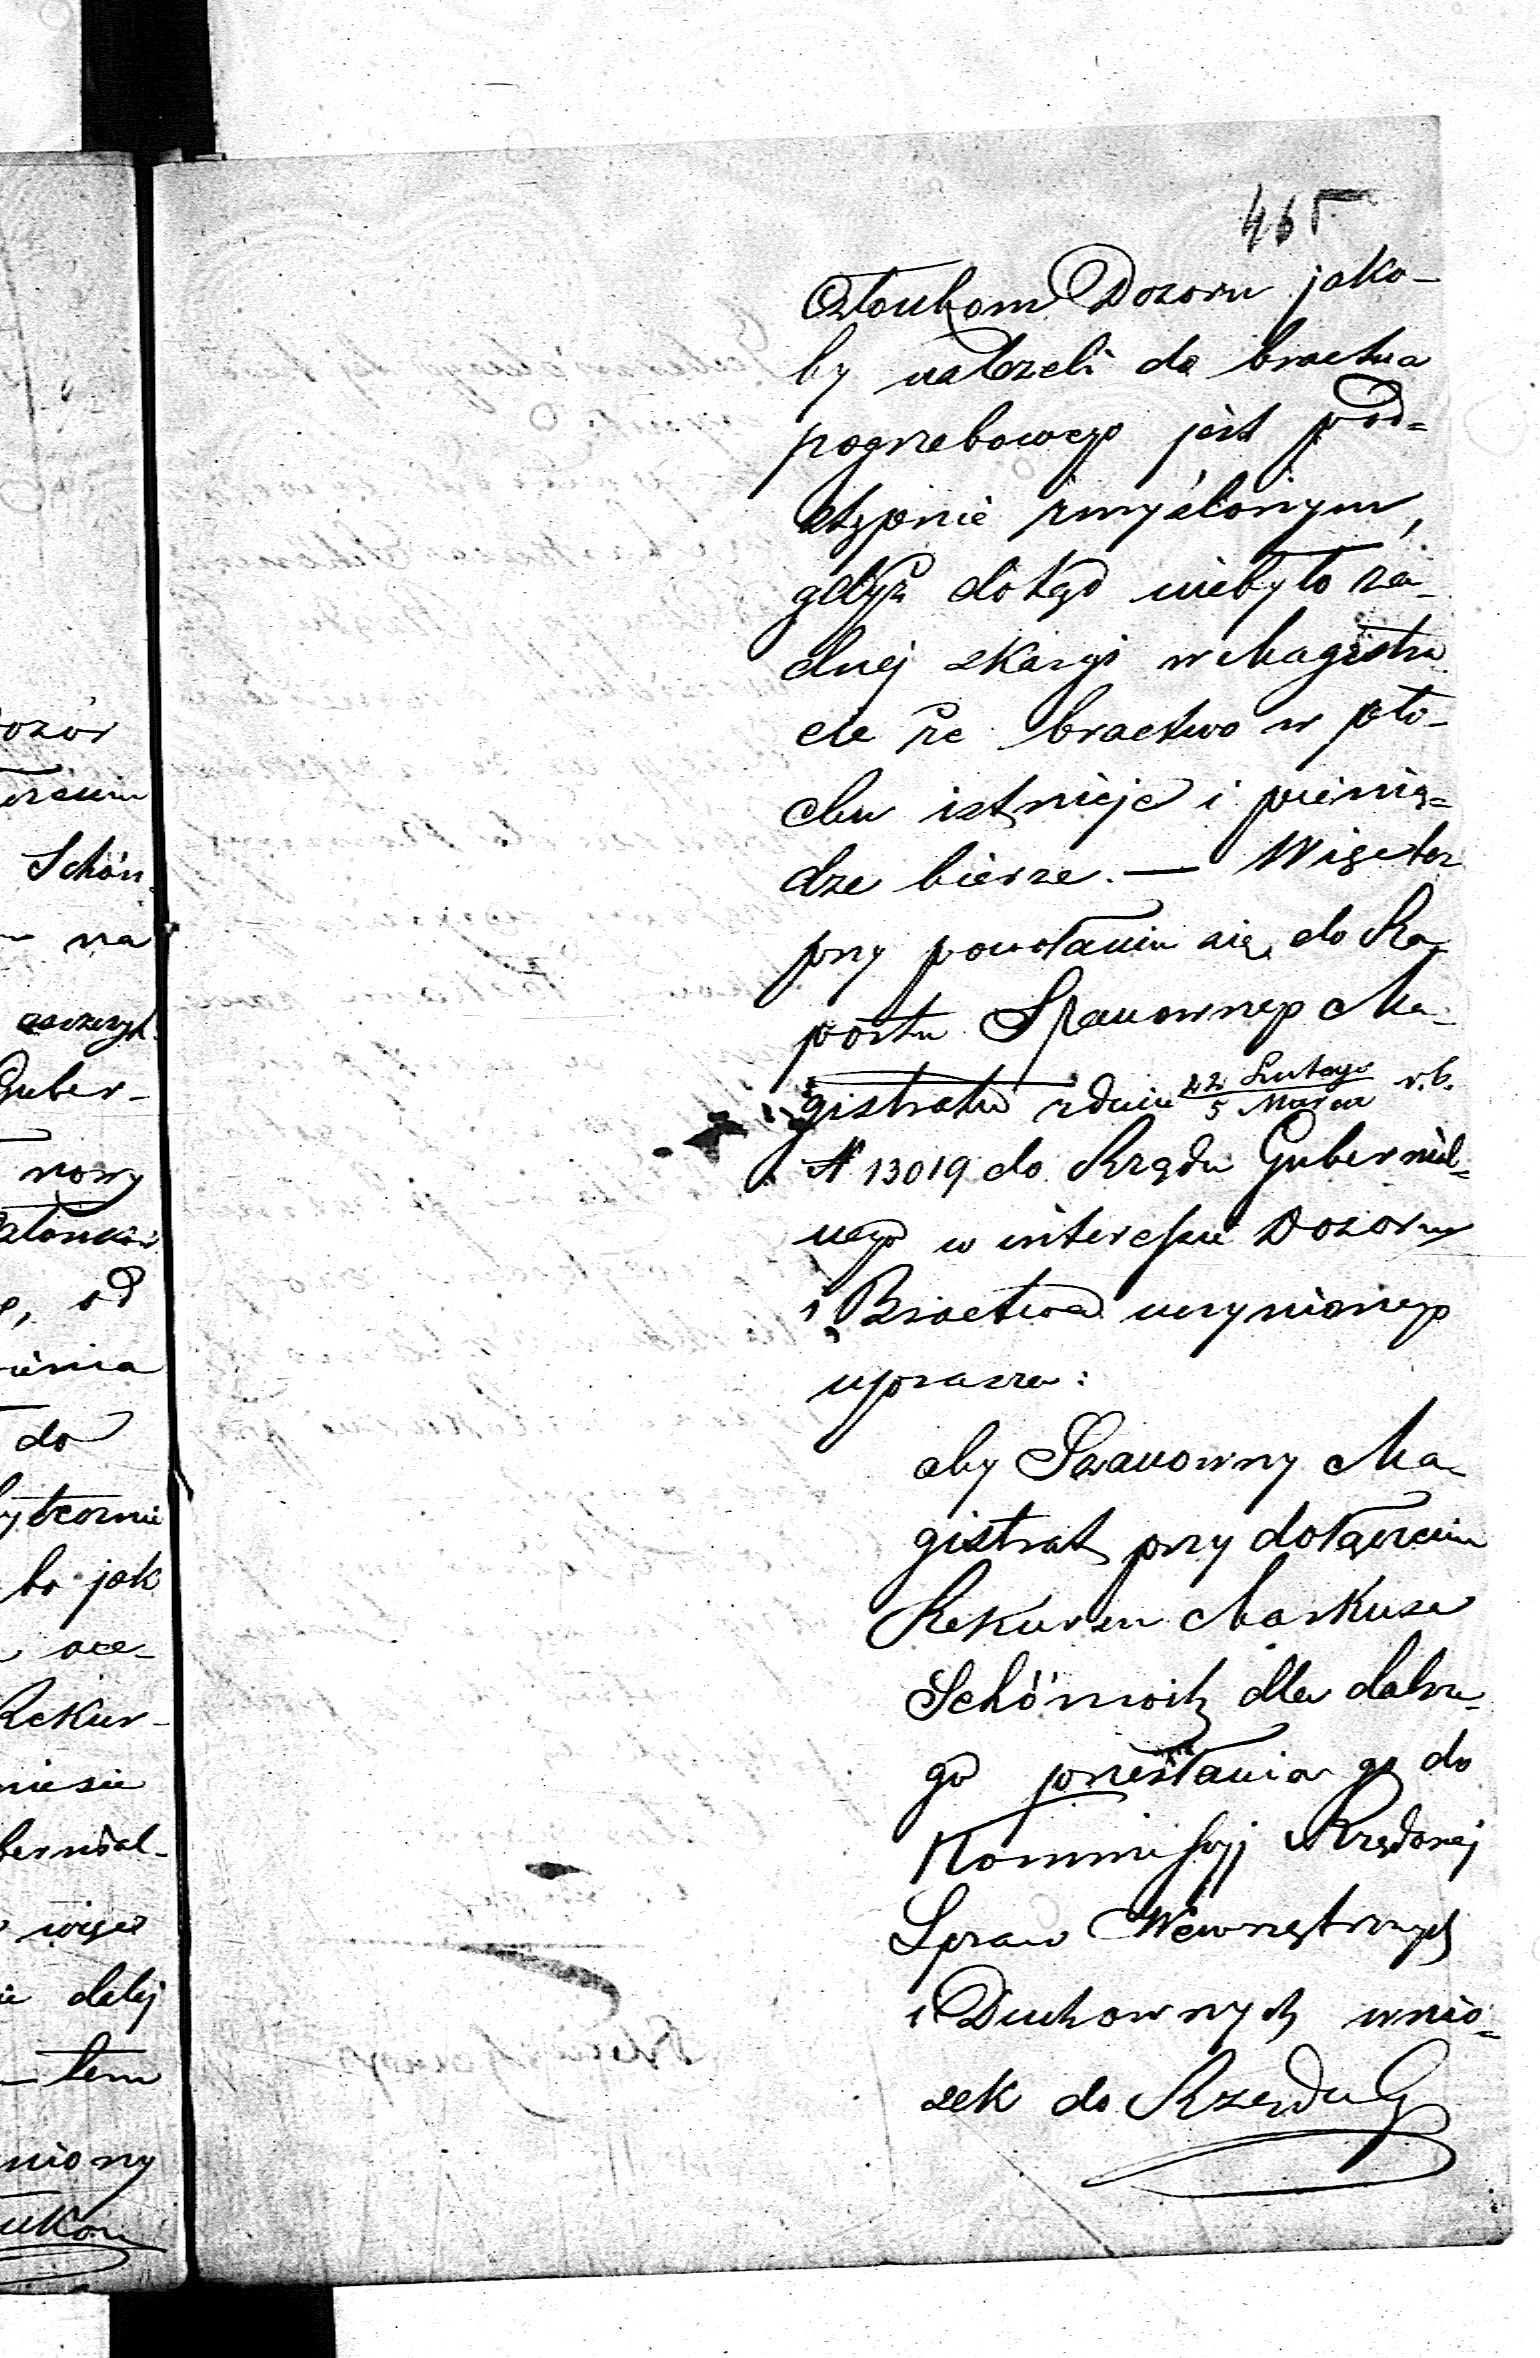 465
Członkom Dozoru jako-
by należeli do bractwa
pogrzebowego jest pod-
stępnie zmyślonym,
gdyż dotąd niebyło ża-
dnej skargi w Magistra
cie że bractwo w poto-
chu istnieje i pienią=
dze bierze. — Więc też
przy powołaniu się do Ra-
portu Szanownego Ma-
gistratu z dnia 22 Lutego / 5 Marca r.b.
N 13019 do Rządu Gubernial-
nego w interessie Dozoru
i Bractwa uczynionego
uprasza:
aby Szanowny Ma-
gistrat przy dołączeniu
Rekursu Markusa
Schönwitz dla dalsze-
go przesłania go do
Kommissyj Rządowej
Spraw Wewnętrznych
i Duchownych wnio=
sek do Rządu G
ozór
Schön
na
Guber-
nowy
od
do
bo jak
Rekur-
niesie
bernial-
więc
dalej
tem
niony